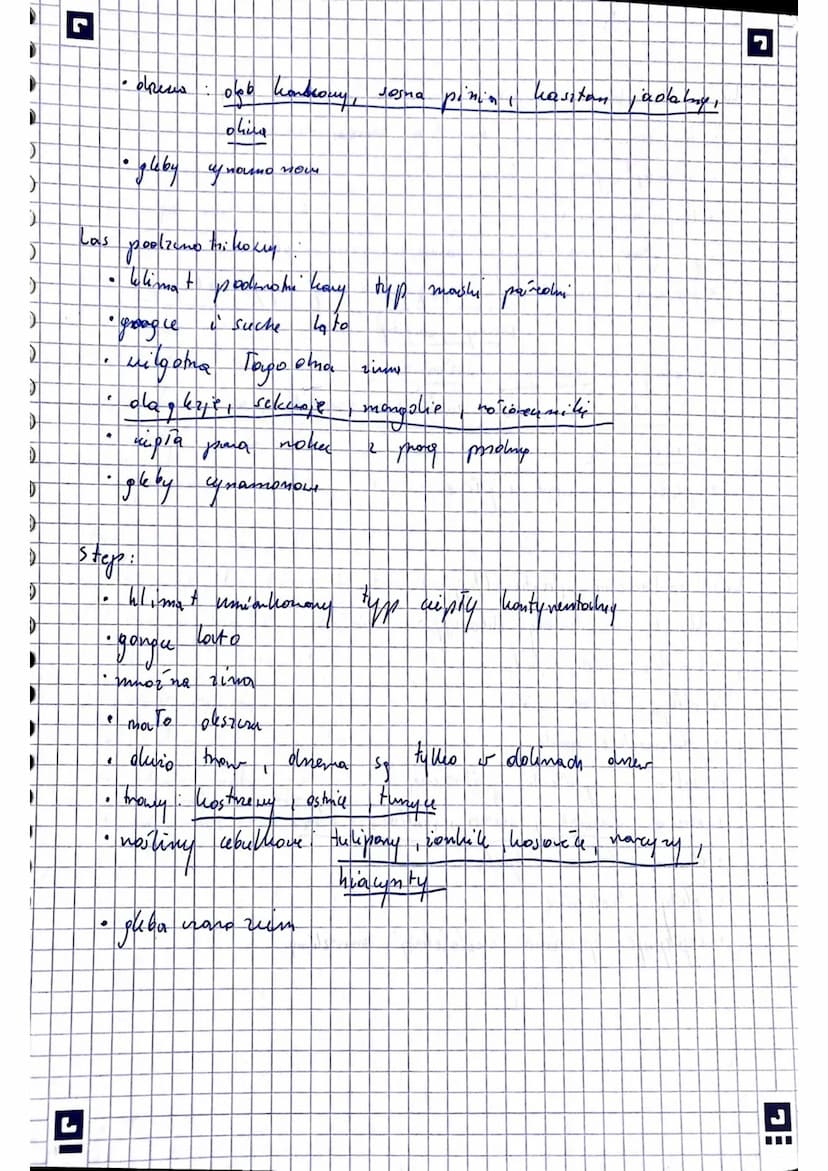 • drzewa : dąb korkowy, sosna pinia, kasztan jadalny,
oliwa
• gleby cynamonowe
Las podzwrotnikowy :
• klimat podzwrotnikowy typ morski pośredni
• gorące i suche lato
• wilgotna łagodna zima
• daglezje, sekwoje, mangolie, różaneczniki
• ciepła pora roku z porą
• gleby cynamonowe
Step:
• klimat umiarkowany typ ciepły kontynentalny
• gorące lato
• mroźna zima
• mało deszczu
• dużo traw, drzewa są tylko w dolinach
• trawy : kostrzewy, ostnice, tymczyce
• rośliny cebulkowe : tulipany, żonkile, kosaćce, narcyzy,
hiacynty
• gleba czarnoziem